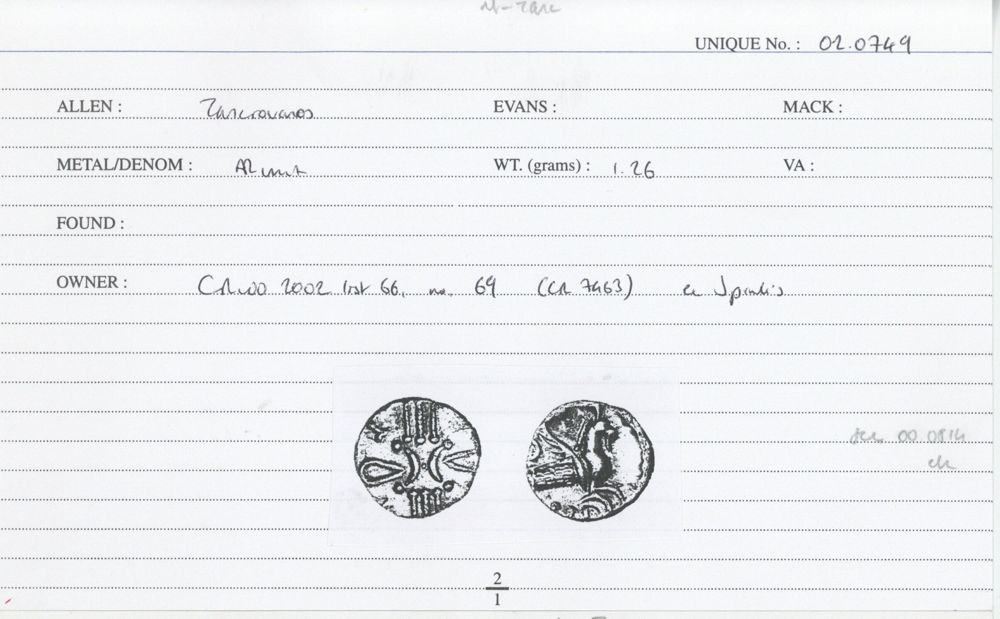 UNIQUE No. : 02.0749
ALLEN : EVANS : MACK :
METAL/DENOM : AR unit WT. (grams) : 1.26 VA :
FOUND :
OWNER : CRUBB 2002 list 66, no. 69 (CR 7463) ex Spink's
see 00.0814
2
1